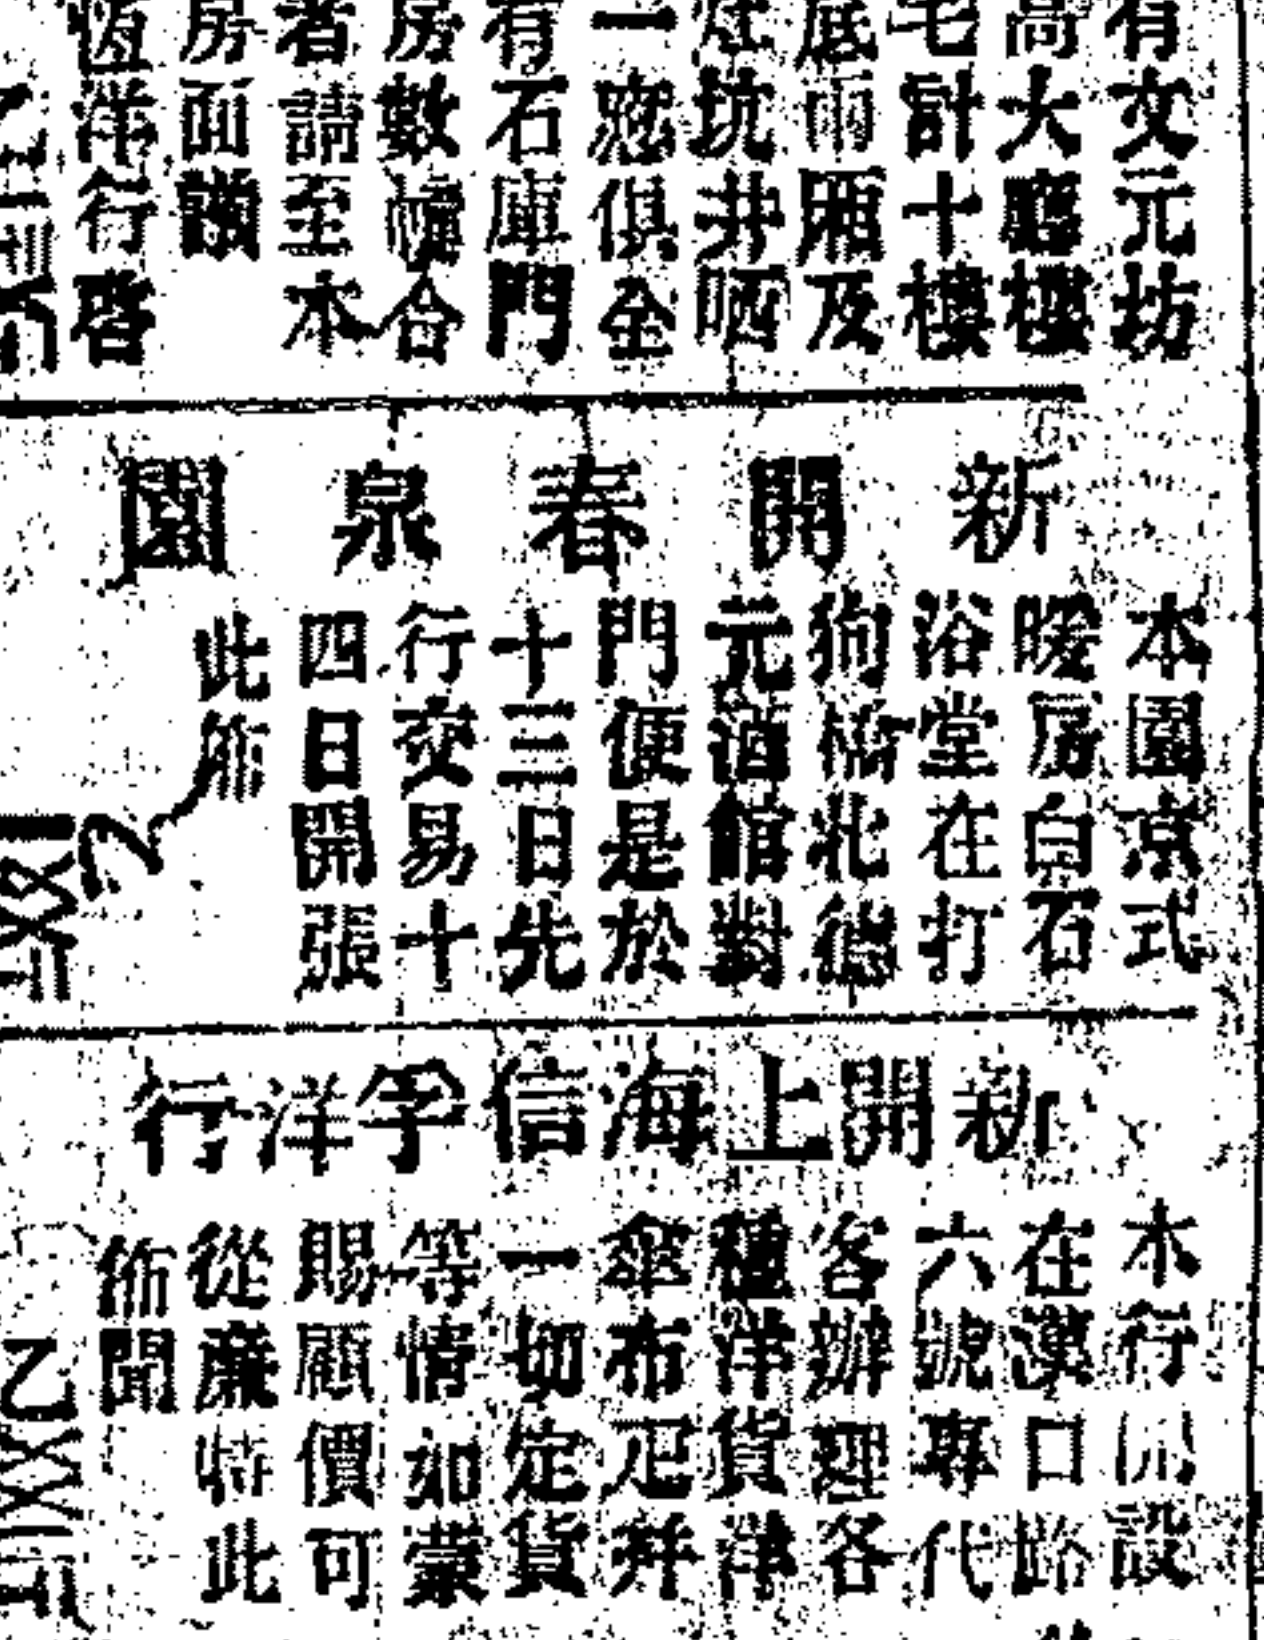 有文元坊
高大廳樓
宅計十樓
底兩廂及
灶坑井晒
一應俱全
有石庫門
房數幢合
者請至本
房面議
恆洋行啓
新開春泉園
本園京式
暖房白石
浴堂在打
狗橋北德
元酒館對
門便是於
十三日先
行交易十
四日開張
此佈
新開上海信孚洋行
本行開設
在漢口路
六號專代
客辦理各
種洋貨洋
傘布疋并
一切定貨
等情如蒙
賜顧價可
從廉特此
佈聞